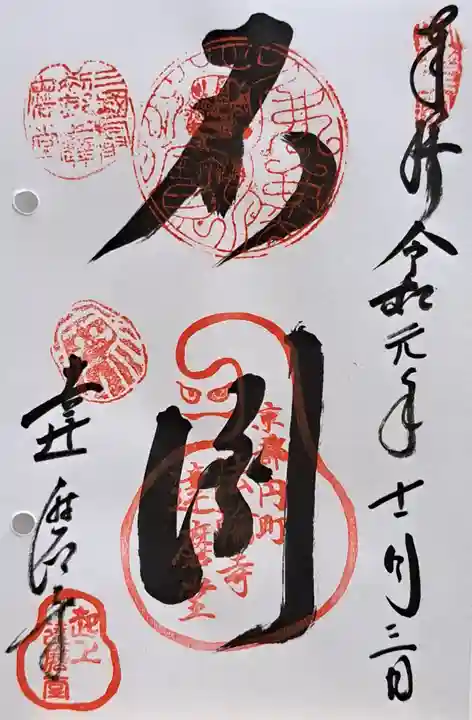 奉拝 令和元年十一月三日
不倒
京都円町
法輪寺
達磨堂
達磨寺
起上
達磨堂